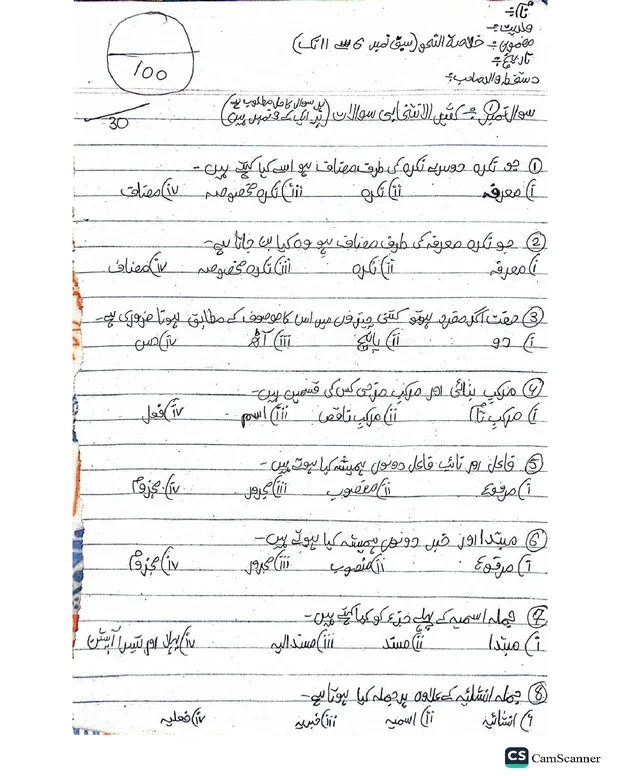 نام:-
ولدیت:-
مضمون:- خلاصۃ النحو (سبق نمبر 6 سے 11 تک)
تاریخ:-
دستخط والد صاحب:-
100
30
سوال نمبر 1:- کثیر الانتخابی سوالات (ہر سوال کا حل مطلوب ہے
ہر ایک کے 3 نمبر ہیں)
① جو نکرہ دوسرے نکرہ کی طرف مضاف ہو اسے کیا کہتے ہیں-
i) معرفہ ii) نکرہ iii) نکرہ مخصوصہ iv) مضاف
② جو نکرہ معرفہ کی طرف مضاف ہو وہ کیا بن جاتا ہے-
i) معرفہ ii) نکرہ iii) نکرہ مخصوصہ iv) مضاف
③ صفت اگر مفرد ہو تو کتنی چیزوں میں اس کا موصوف کے مطابق ہونا ضروری ہے-
i) دو ii) پانچ iii) آٹھ iv) دس
④ مرکب بنائی اور مرکب مزجی کس کی قسمیں ہیں-
i) مرکب تام ii) مرکب ناقص iii) اسم iv) فعل
⑤ فاعل اور نائب فاعل دونوں ہمیشہ کیا ہوتے ہیں-
i) مرفوع ii) منصوب iii) مجرور iv) مجزوم
⑥ مبتدا اور خبر دونوں ہمیشہ کیا ہوتے ہیں-
i) مرفوع ii) منصوب iii) مجرور iv) مجزوم
⑦ جملہ اسمیہ کے پہلے جزء کو کیا کہتے ہیں-
i) مبتدا ii) مسند iii) مسندالیہ iv) پہلا اور تیسرا آپشن
⑧ جملہ انشائیہ کے علاوہ ہر جملہ کیا ہوتا ہے-
i) انشائیہ ii) اسمیہ iii) خبریہ iv) فعلیہ
CS CamScanner